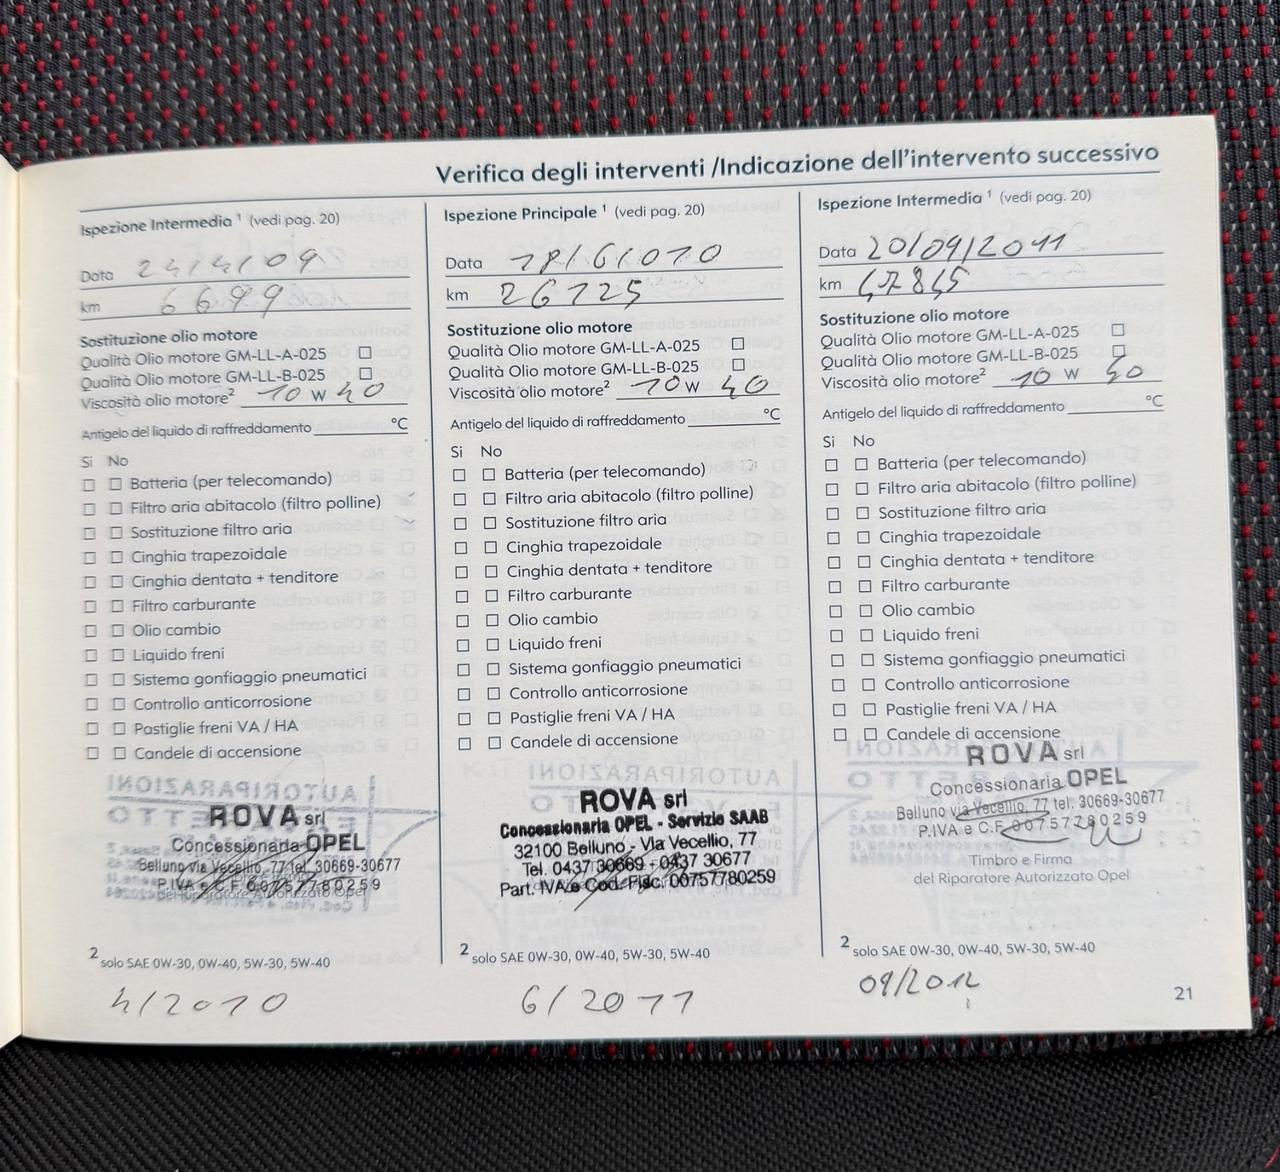 Verifica degli interventi /Indicazione dell'intervento successivo
Ispezione Intermedia ¹ (vedi pag. 20)
Data 24/4/09
km 6699
Sostituzione olio motore
Qualità Olio motore GM-LL-A-025 ☐
Qualità Olio motore GM-LL-B-025 ☐
Viscosità olio motore² 10 W 40
Antigelo del liquido di raffreddamento °C
Si No
☐ ☐ Batteria (per telecomando)
☐ ☐ Filtro aria abitacolo (filtro polline)
☐ ☐ Sostituzione filtro aria
☐ ☐ Cinghia trapezoidale
☐ ☐ Cinghia dentata + tenditore
☐ ☐ Filtro carburante
☐ ☐ Olio cambio
☐ ☐ Liquido freni
☐ ☐ Sistema gonfiaggio pneumatici
☐ ☐ Controllo anticorrosione
☐ ☐ Pastiglie freni VA / HA
☐ ☐ Candele di accensione
ROVA srl
Concessionaria OPEL
Belluno via Vecellio, 77 tel. 30669-30677
P.IVA e C.F. 00757780259
del Riparatore Autorizzato Opel
² solo SAE 0W-30, 0W-40, 5W-30, 5W-40
4/2010
Ispezione Principale ¹ (vedi pag. 20)
Data 18/6/010
km 26125
Sostituzione olio motore
Qualità Olio motore GM-LL-A-025 ☐
Qualità Olio motore GM-LL-B-025 ☐
Viscosità olio motore² 10 W 40
Antigelo del liquido di raffreddamento °C
Si No
☐ ☐ Batteria (per telecomando)
☐ ☐ Filtro aria abitacolo (filtro polline)
☐ ☐ Sostituzione filtro aria
☐ ☐ Cinghia trapezoidale
☐ ☐ Cinghia dentata + tenditore
☐ ☐ Filtro carburante
☐ ☐ Olio cambio
☐ ☐ Liquido freni
☐ ☐ Sistema gonfiaggio pneumatici
☐ ☐ Controllo anticorrosione
☐ ☐ Pastiglie freni VA / HA
☐ ☐ Candele di accensione
ROVA srl
Concessionaria OPEL - Servizio SAAB
32100 Belluno - Via Vecellio, 77
Tel. 0437 30669 - 0437 30677
Part. IVA e Cod. Fisc. 00757780259
² solo SAE 0W-30, 0W-40, 5W-30, 5W-40
6/2011
Ispezione Intermedia ¹ (vedi pag. 20)
Data 20/09/2011
km 47845
Sostituzione olio motore
Qualità Olio motore GM-LL-A-025 ☐
Qualità Olio motore GM-LL-B-025 ☐
Viscosità olio motore² 10 W 40
Antigelo del liquido di raffreddamento °C
Si No
☐ ☐ Batteria (per telecomando)
☐ ☐ Filtro aria abitacolo (filtro polline)
☐ ☐ Sostituzione filtro aria
☐ ☐ Cinghia trapezoidale
☐ ☐ Cinghia dentata + tenditore
☐ ☐ Filtro carburante
☐ ☐ Olio cambio
☐ ☐ Liquido freni
☐ ☐ Sistema gonfiaggio pneumatici
☐ ☐ Controllo anticorrosione
☐ ☐ Pastiglie freni VA / HA
☐ ☐ Candele di accensione
ROVA srl
Concessionaria OPEL
Belluno via Vecellio, 77 tel. 30669-30677
P.IVA e C.F. 00757780259
Timbro e Firma
del Riparatore Autorizzato Opel
² solo SAE 0W-30, 0W-40, 5W-30, 5W-40
09/2012
21